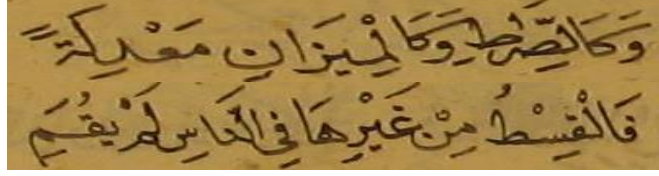 وَكَالصِّرَاطِ وَكَالْمِيزَانِ مَعْدِلَةً
فَالْقِسْطُ مِنْ غَيْرِهَا فِي النَّاسِ لَمْ يَقُمِ